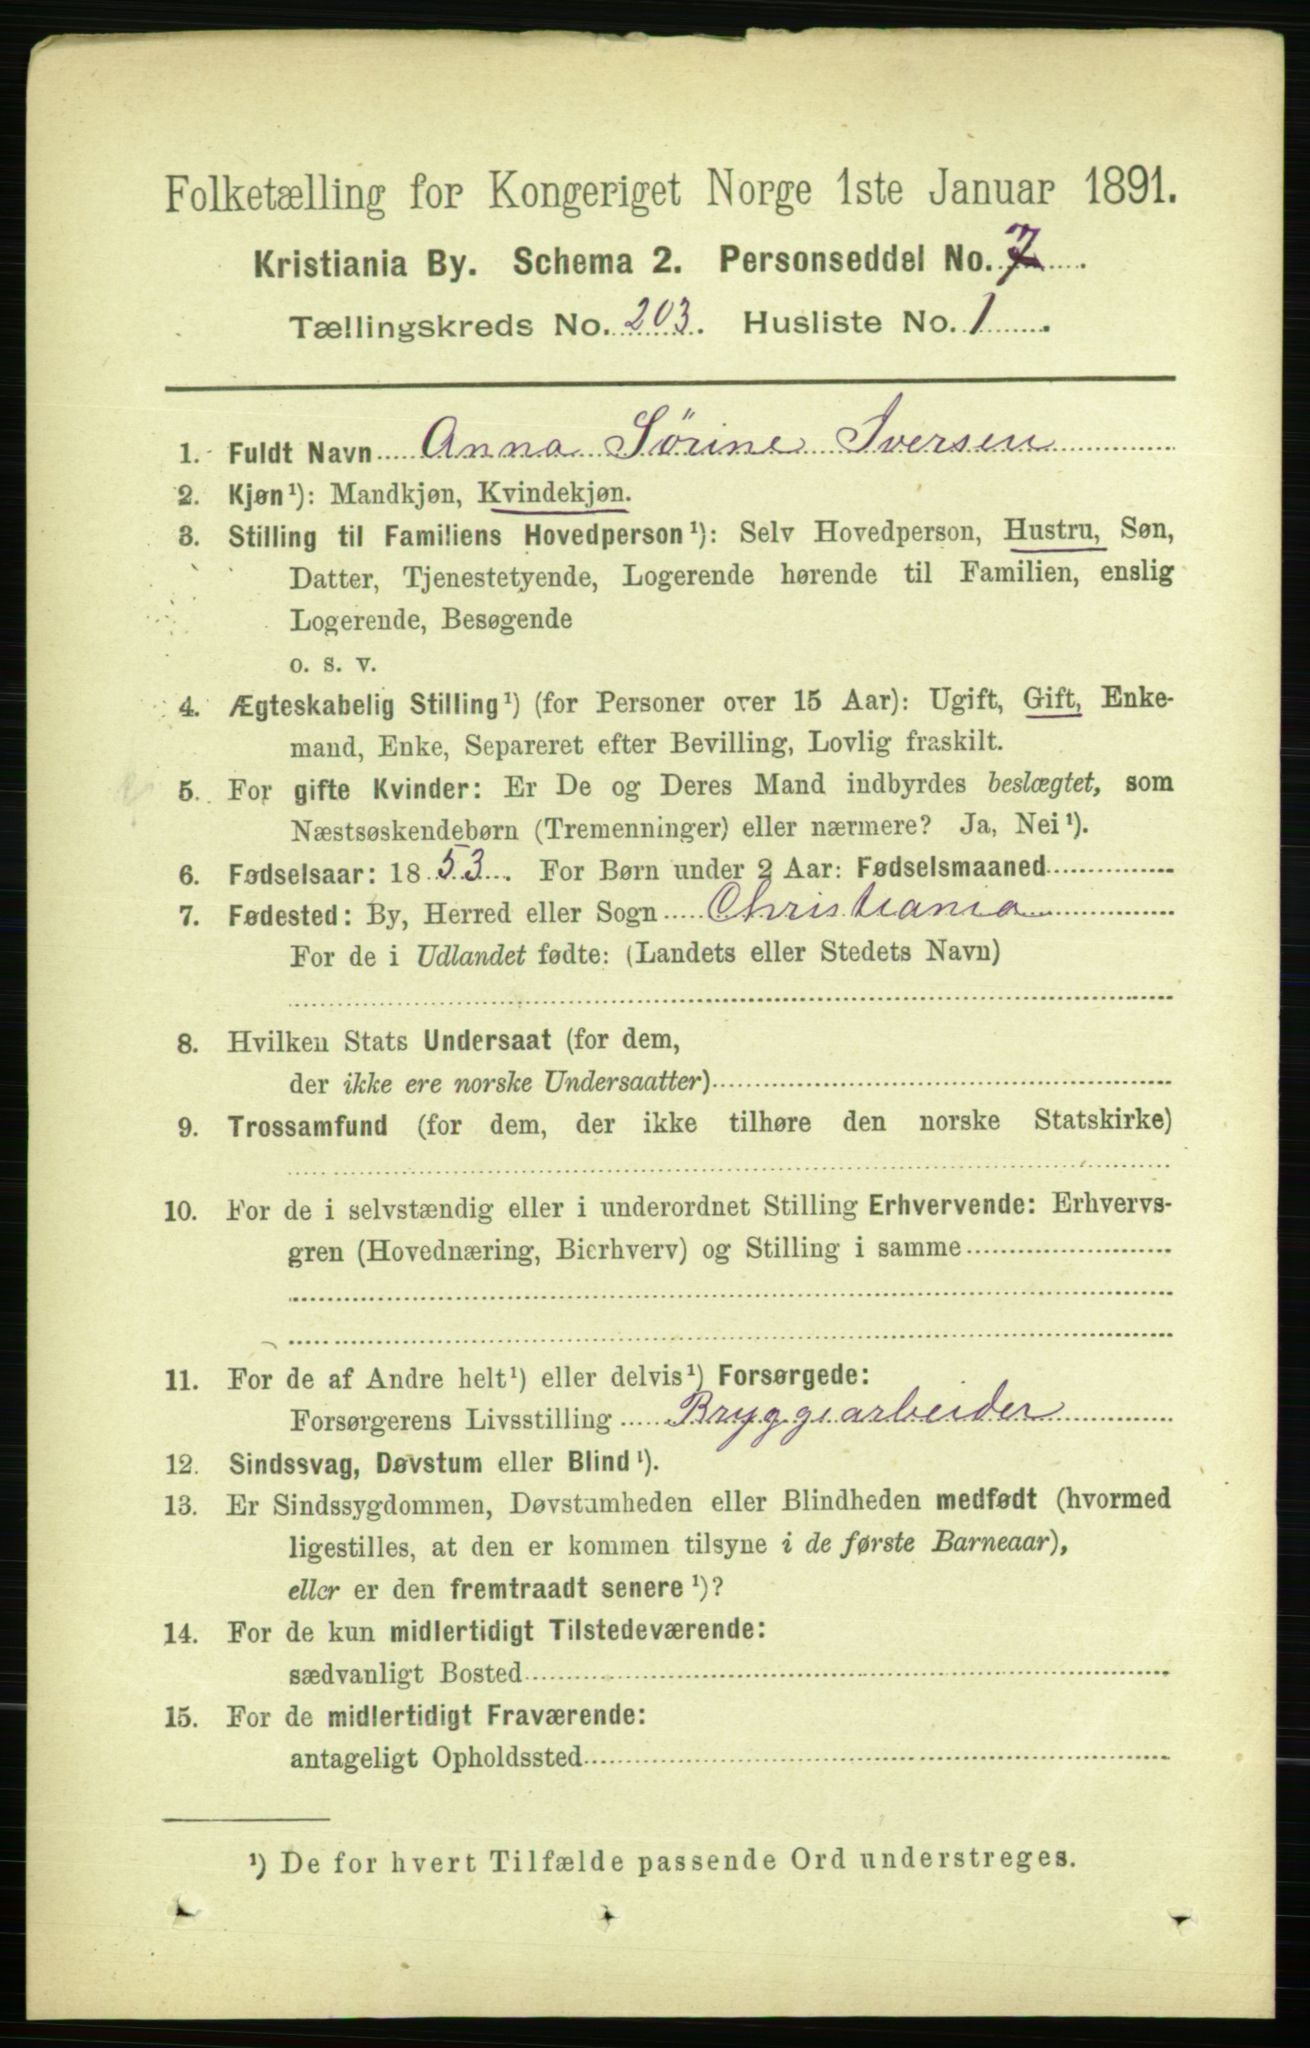 Folketælling for Kongeriget Norge 1ste Januar 1891.
Kristiania By. Schema 2. Personseddel No. 7
Tællingskreds No. 203. Husliste No. 1
1. Fuldt Navn Anna Sörine Iversen
2. Kjøn¹): Mandkjøn, Kvindekjøn.
3. Stilling til Familiens Hovedperson¹): Selv Hovedperson, Hustru, Søn,
Datter, Tjenestetyende, Logerende hørende til Familien, enslig
Logerende, Besøgende
o. s. v.
4. Ægteskabelig Stilling¹) (for Personer over 15 Aar): Ugift, Gift, Enke-
mand, Enke, Separeret efter Bevilling, Lovlig fraskilt.
5. For gifte Kvinder: Er De og Deres Mand indbyrdes beslægtet, som
Næstsøskendebørn (Tremenninger) eller nærmere? Ja, Nei¹).
6. Fødselsaar: 1853. For Børn under 2 Aar: Fødselsmaaned
7. Fødested: By, Herred eller Sogn Christiania
For de i Udlandet fødte: (Landets eller Stedets Navn)
8. Hvilken Stats Undersaat (for dem,
der ikke ere norske Undersaatter)
9. Trossamfund (for dem, der ikke tilhøre den norske Statskirke)
10. For de i selvstændig eller i underordnet Stilling Erhvervende: Erhvervs-
gren (Hovednæring, Bierhverv) og Stilling i samme
11. For de af Andre helt¹) eller delvis¹) Forsørgede:
Forsørgerens Livsstilling Bryggearbeider
12. Sindssvag, Døvstum eller Blind¹).
13. Er Sindssygdommen, Døvstumheden eller Blindheden medfødt (hvormed
ligestilles, at den er kommen tilsyne i de første Barneaar),
eller er den fremtraadt senere¹)?
14. For de kun midlertidigt Tilstedeværende:
sædvanligt Bosted
15. For de midlertidigt Fraværende:
antageligt Opholdssted
¹) De for hvert Tilfælde passende Ord understreges.